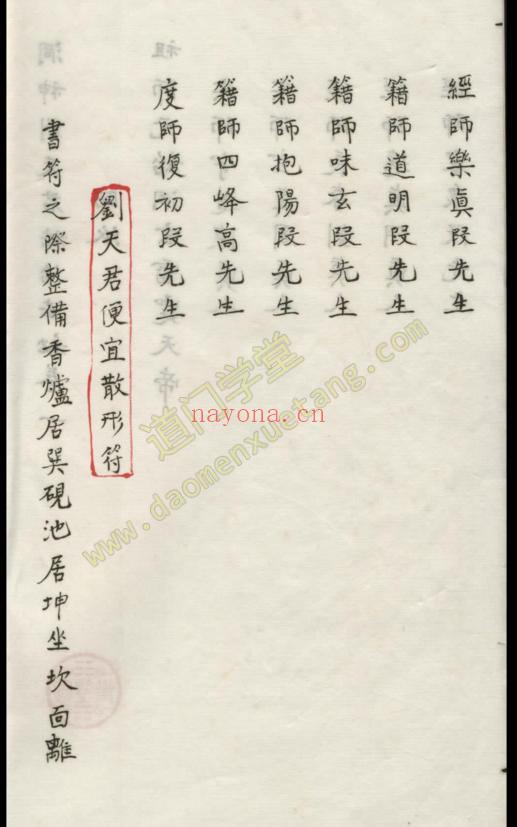 經師樂眞段先生
籍師道明段先生
籍師味玄段先生
籍師抱陽段先生
籍師四峰高先生
度師復初段先生
劉天君便宜散形符
書符之際整備香爐居巽硯池居坤坐坎面離
道门学堂
www.daomenxuetang.com
nayona.cn